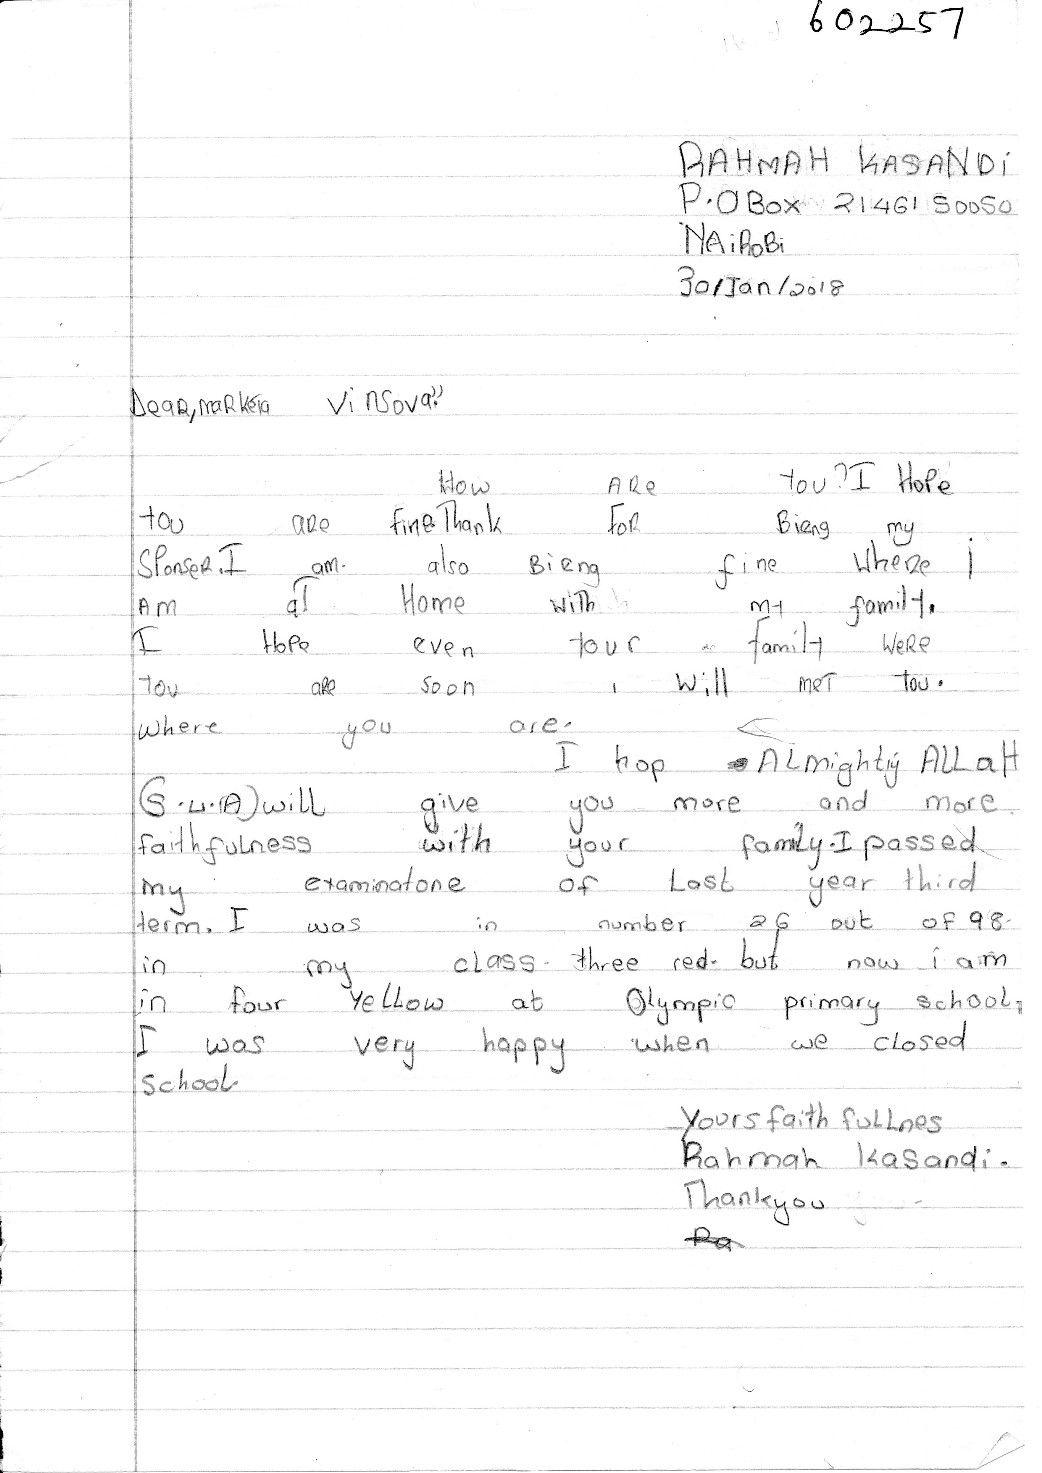 602257
RAHMAH KASANDi
P.O Box 21461 50050
NAiRoBi
30/Jan/2018
Dear, markéta Vinsova"
How ARe you? I HoPe
you are fine Thank FoR Bieng my
SPonseR. I am. also Bieng fine Where i
Am at Home with my family.
I HoPe even your family WeRe
you aRe soon i Will meT you.
where you are.
I hop ALmighty ALLaH
(S.W.A) will give you more and more
faithfulness with your family. I passed
my examinatone of Last year third
term. I was in number 26 out of 98
in my class three red. but now i am
in four YeLLow at Olympic primary school,
I was very happy when we closed
school
Yours faith fullnes
Rahmah Kasandi.
Thankyou
Ra